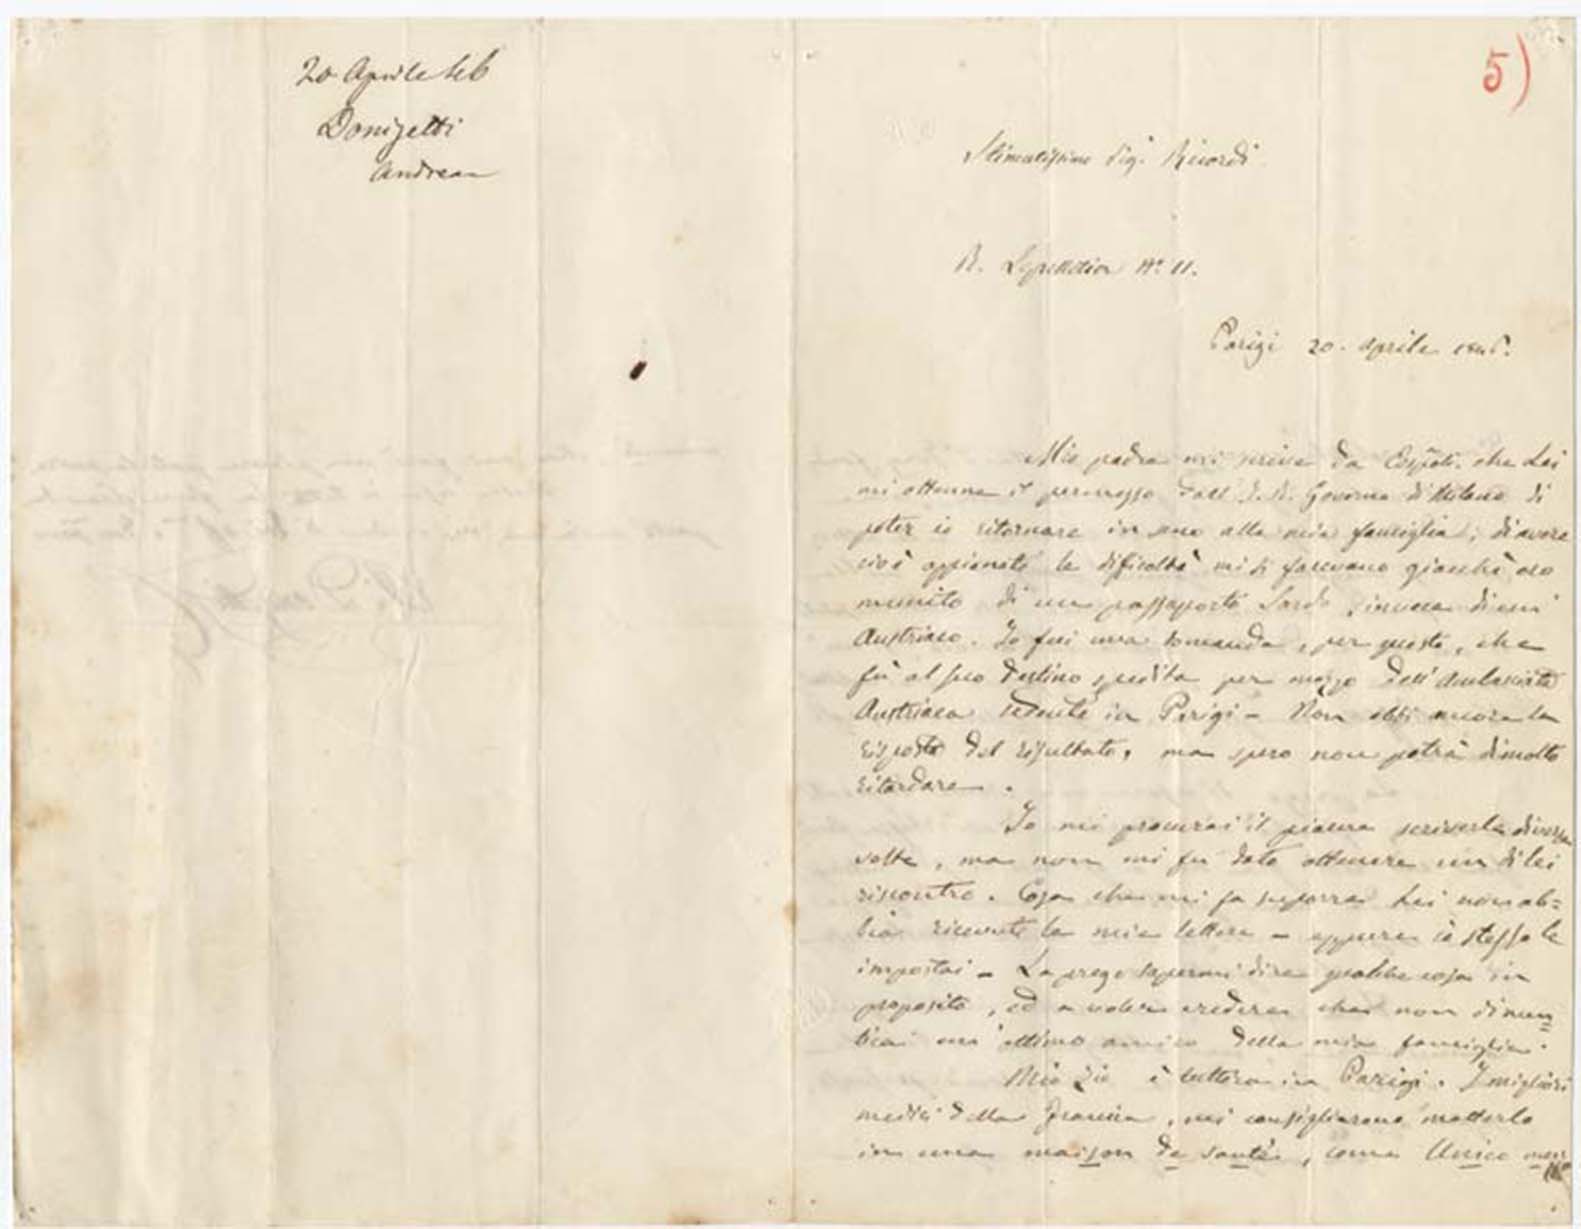 20 Aprile 846
Donizetti
Andrea
5)
Stimatissimo Sig. Ricordi
R. Spedition N° 11.
Parigi 20. aprile 1846.
Mio padre mi scrive da Costpoli. che Lei
mi ottenne il permesso dall' I. R. Governo di Milano di
poter io ritornare in uno alla mia famiglia; di avere
cioè appianate le difficoltà mi si facevano giacchè ero
munito di un passaporto Sardo, invece di uno
Austriaco. Io feci una domanda, per questo, che
fù al suo destino spedita per mezzo dell' Ambasciata
Austriaca sedente in Parigi - Non ebbi ancora la
risposta del risultato, ma spero non potrà dimolto
ritardare.
Io mi procurai il piacere scriverle diverse
volte, ma non mi fu dato ottenere un di lei
riscontro. Cosa che mi fa supporre Lei non ab=
bia ricevute le mie lettere - oppure io stesso le
impostai - La prego sapermi dire qualche cosa in
proposito, ed a voler credere che non dimen=
ticai un' ottimo amico della mia famiglia.
Mio Zio è tuttora in Parigi. I migliori
medici della Francia, mi consigliarono metterlo
in una maison de santé, come Unico